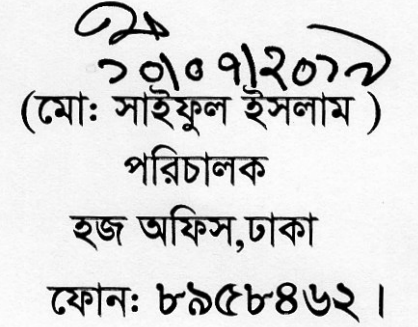 ১০/০৭/২০১৯
(মো: সাইফুল ইসলাম )
পরিচালক
হজ অফিস,ঢাকা
ফোন: ৮৯৫৮৪৬২ ।